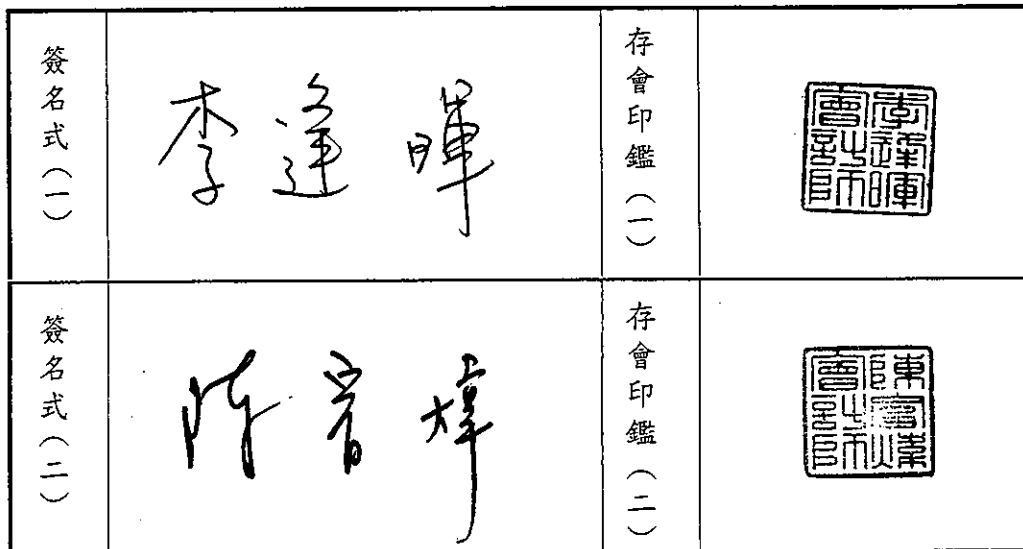 簽名式(一)
李逢暉
存會印鑑(一)
李逢暉
會計師
簽名式(二)
陳
存會印鑑(二)
陳
會計師